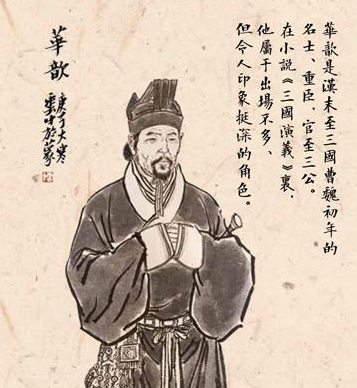 華歆是漢末至三國曹魏初年的
名士、重臣，官至三公。
在小說《三國演義》裏，
他屬于出場不多、
但令人印象挺深的角色。
華歆